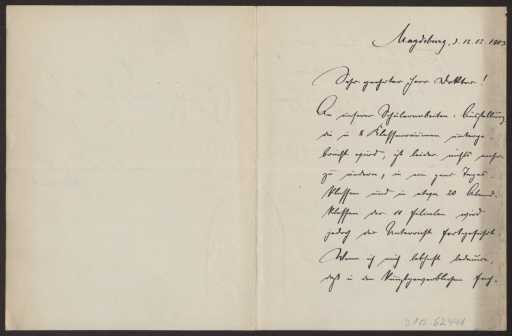 Magdeburg, d. 12. 12. 1903
Sehr geehrter Herr Doktor!
An unserer Schülerarbeiten-Ausstellung
die in 8 Klassenräumen unterge-
bracht wird, ist leider nichts mehr
zu ändern, in ein paar Tages-
klassen und in etwa 20 Abend-
klassen der 10 Filialen wird
jedoch der Unterricht fortgeführt.
Wenn ich mich lebhaft bedaure,
daß in den kunstgewerblichen Fach-